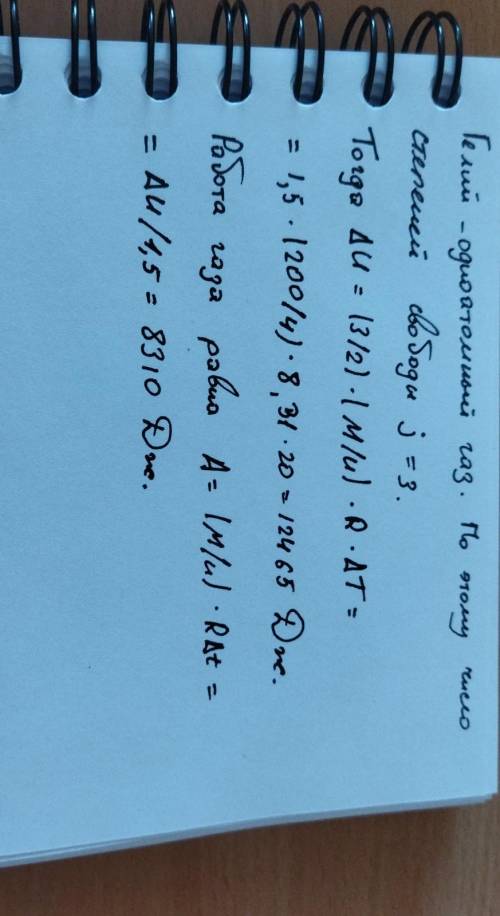 Гелий - одноатомный газ. По этому число
степеней свободы j = 3.
Тогда ΔU = (3/2) · (M/μ) · R · ΔT =
= 1,5 · (200/4) · 8,31 · 20 = 12465 Дж.
Работа газа равна A = (M/μ) · RΔt =
= ΔU/1,5 = 8310 Дж.